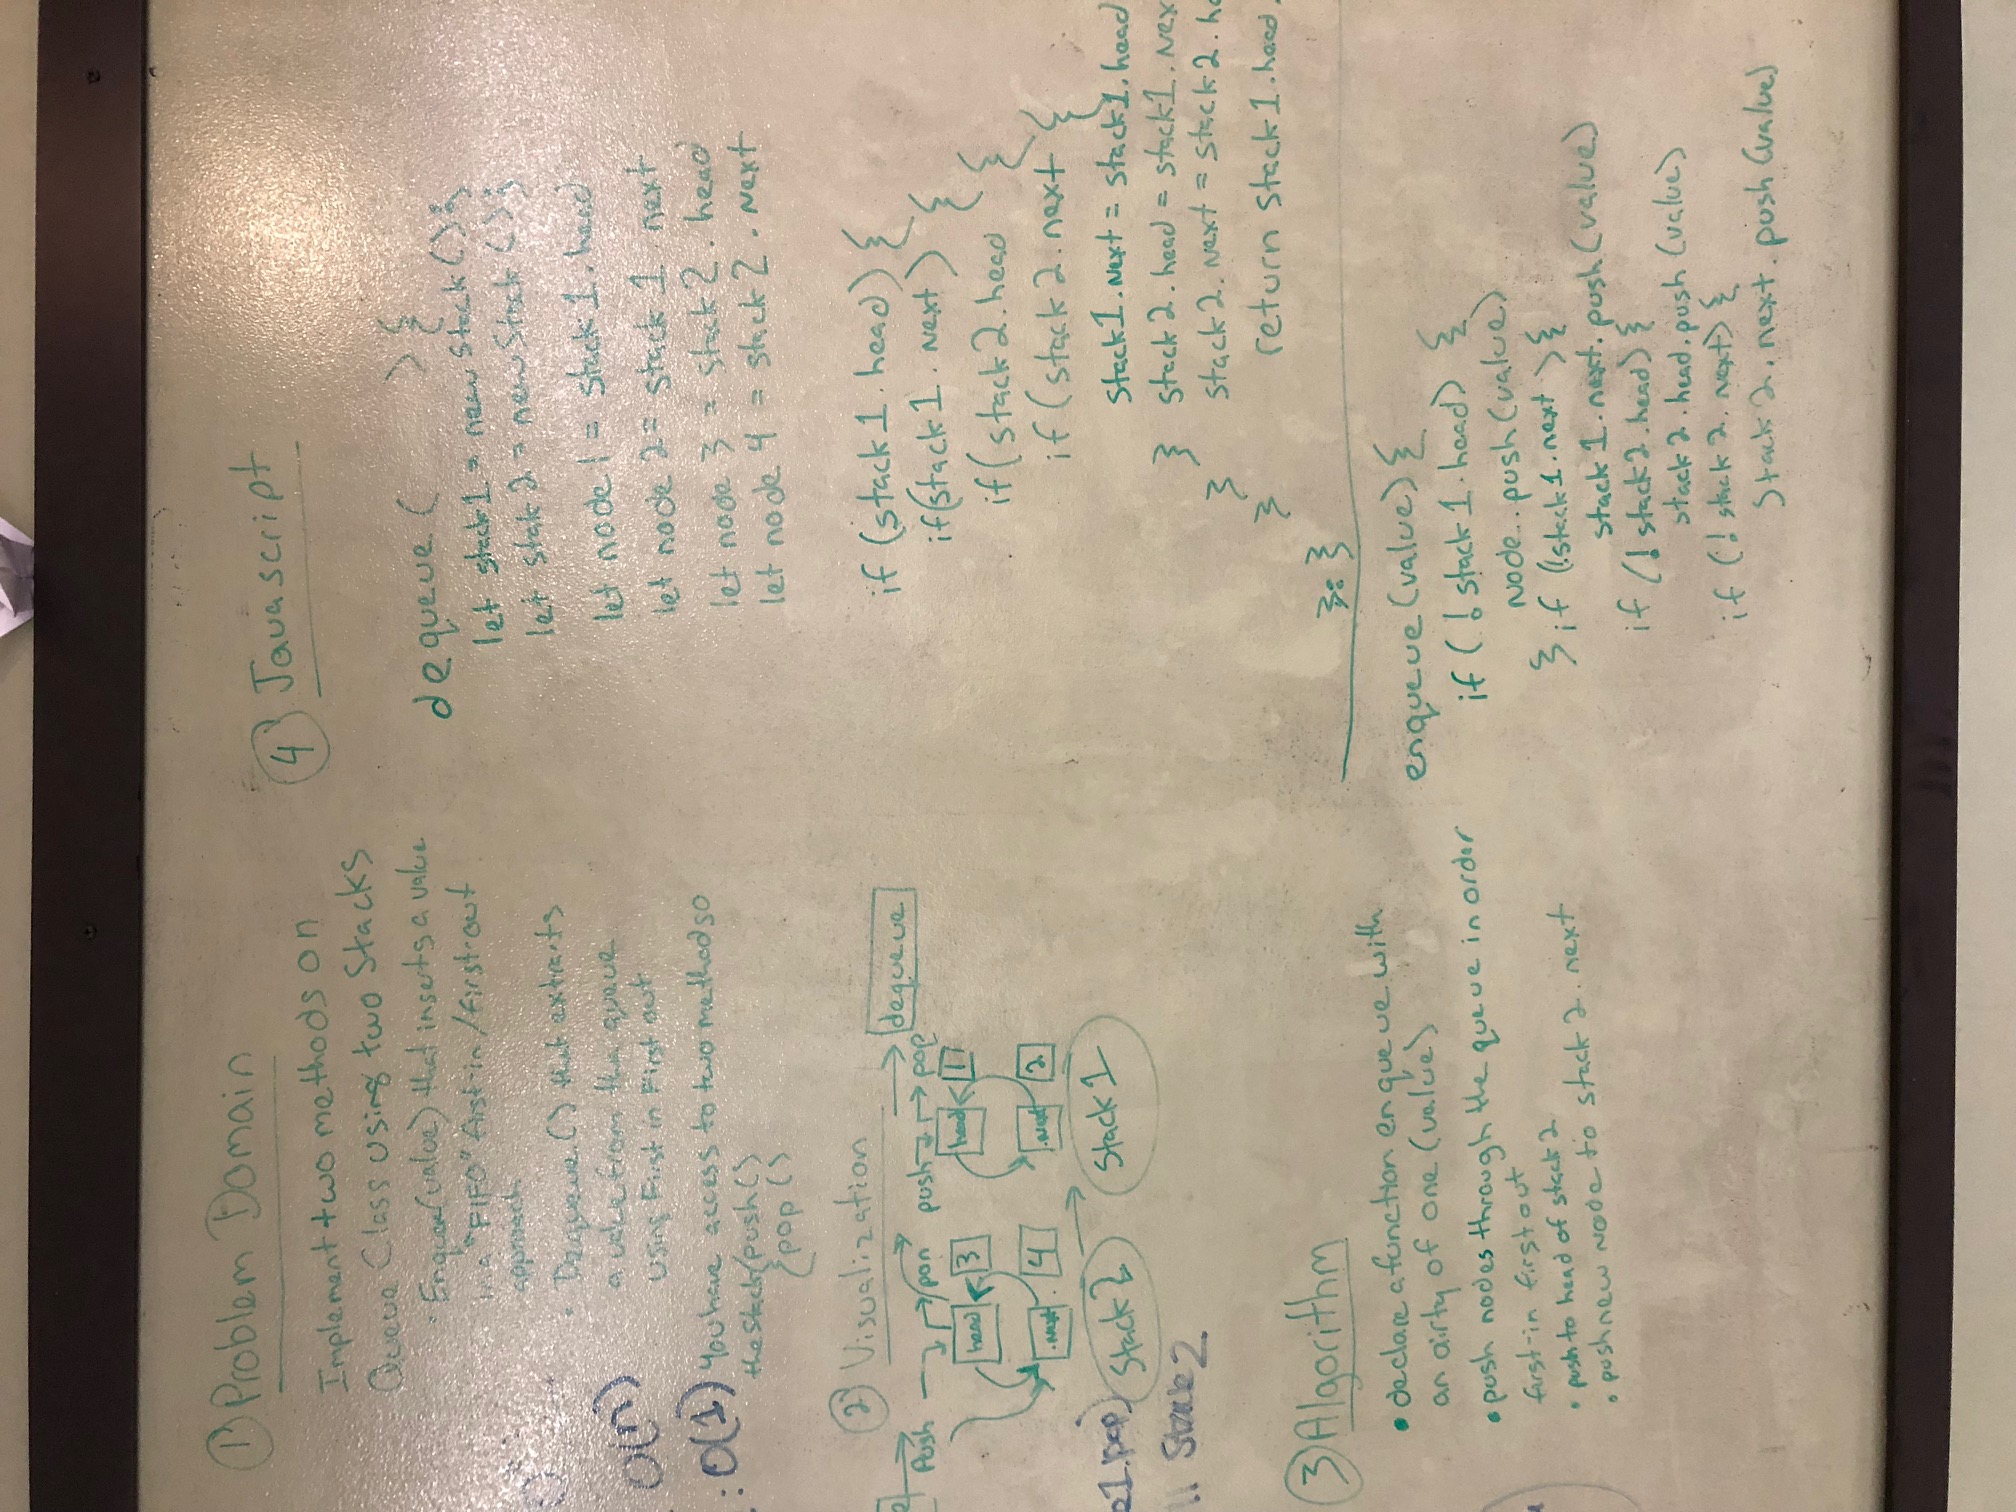 ① Problem Domain
Implement two methods on
Queue Class using two Stacks
• Enqueue(value) that inserts a value
in a "FIFO" first-in/first-out
approach
• Dequeue() that extracts
a value from the queue
using First in First out
O(n)
: O(1)
You have access to two methods o
the Stack { push()
{ pop ()
② Visualization
Push pop push pop dequeue
head 3 head 1
.next 4 .next 2
Stack 2 Stack 1
1.pop)
Stack 2
③ Algorithm
• declare a function enqueue with
an airty of one (value)
• push nodes through the queue in order
first-in first out
• push to head of stack 2
• push new node to stack 2.next
④ Javascript
dequeue ( ) {
let stack1 = new Stack();
let stak 2 = new Stack ();
let node 1 = stack 1.head
let node 2 = stack 1.next
let node 3 = stack 2.head
let node 4 = stack 2.next
if (stack 1.head) {
if(stack 1.next) {
if (stack 2.head {
if (stack 2.next {
stack1.next = stack1.head
} stack 2.head = stack1.nex
} stack2.next = stack2.he
} return stack1.head.
}; }
enqueue (value) {
if (! stack 1.head) {
Node..push(value)
} if (!stack 1.next ) {
stack 1.next.push(value)
if (! stack 2.head) {
stack 2.head.push (value)
if (! stack 2.next) {
Stack 2.next.push (value)